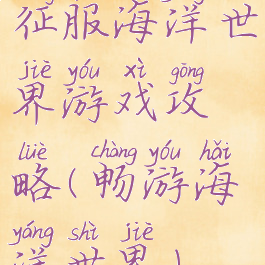 征服海洋世
jiè yóu xì gōng
界游戏攻
lüè chàng yóu hǎi
略(畅游海
yáng shì jiè
洋世界)